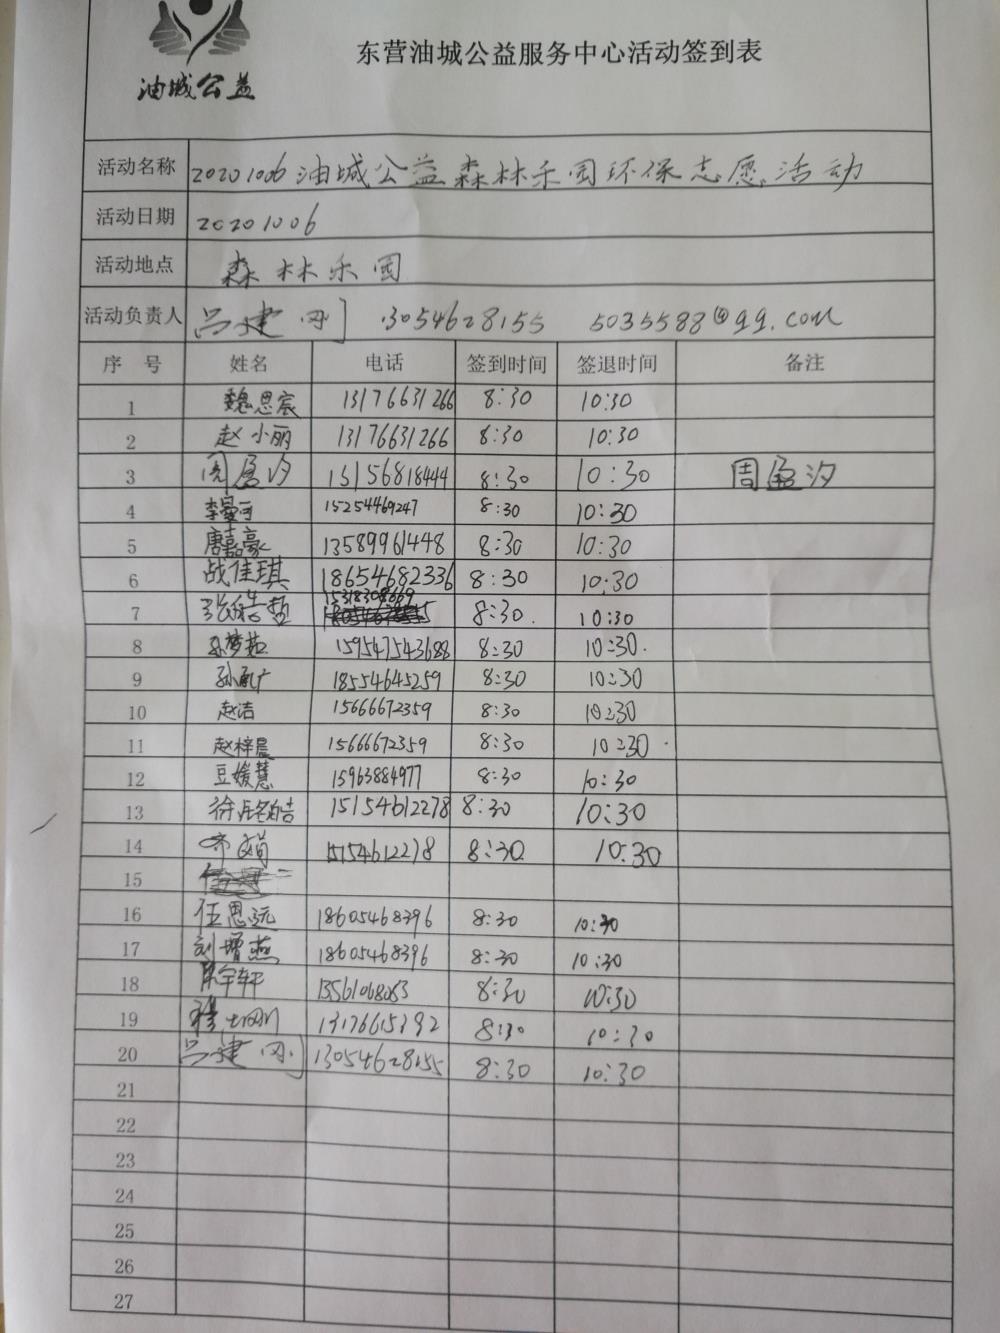 油城公益
东营油城公益服务中心活动签到表
活动名称 20201006油城公益森林乐园环保志愿活动
活动日期 20201006
活动地点 森林乐园
活动负责人 吕建刚 13054628155 5035588@qq.com
序号 姓名 电话 签到时间 签退时间 备注
1 魏思宸 13176631266 8:30 10:30
2 赵小丽 13176631266 8:30 10:30
3 周盈汐 15156818444 8:30 10:30 周盈汐
4 李 可 15254469247 8:30 10:30
5 唐嘉豪 13589961448 8:30 10:30
6 战佳琪 18654682336 8:30 10:30
7 张皓哲 15318308669 8:30 10:30
8 孙梦茹 159547543688 8:30 10:30
9 孙 18554645259 8:30 10:30
10 赵洁 15666672359 8:30 10:30
11 赵梓晨 15666672359 8:30 10:30
12 豆媛慧 15963884977 8:30 10:30
13 徐 皓 15154612278 8:30 10:30
14 15154612278 8:30 10:30
15
16 任思远 18605468396 8:30 10:30
17 刘增燕 18605468396 8:30 10:30
18 宇轩 8:30 10:30
19 穆 刚 13176615392 8:30 10:30
20 吕建刚 13054628155 8:30 10:30
21
22
23
24
25
26
27